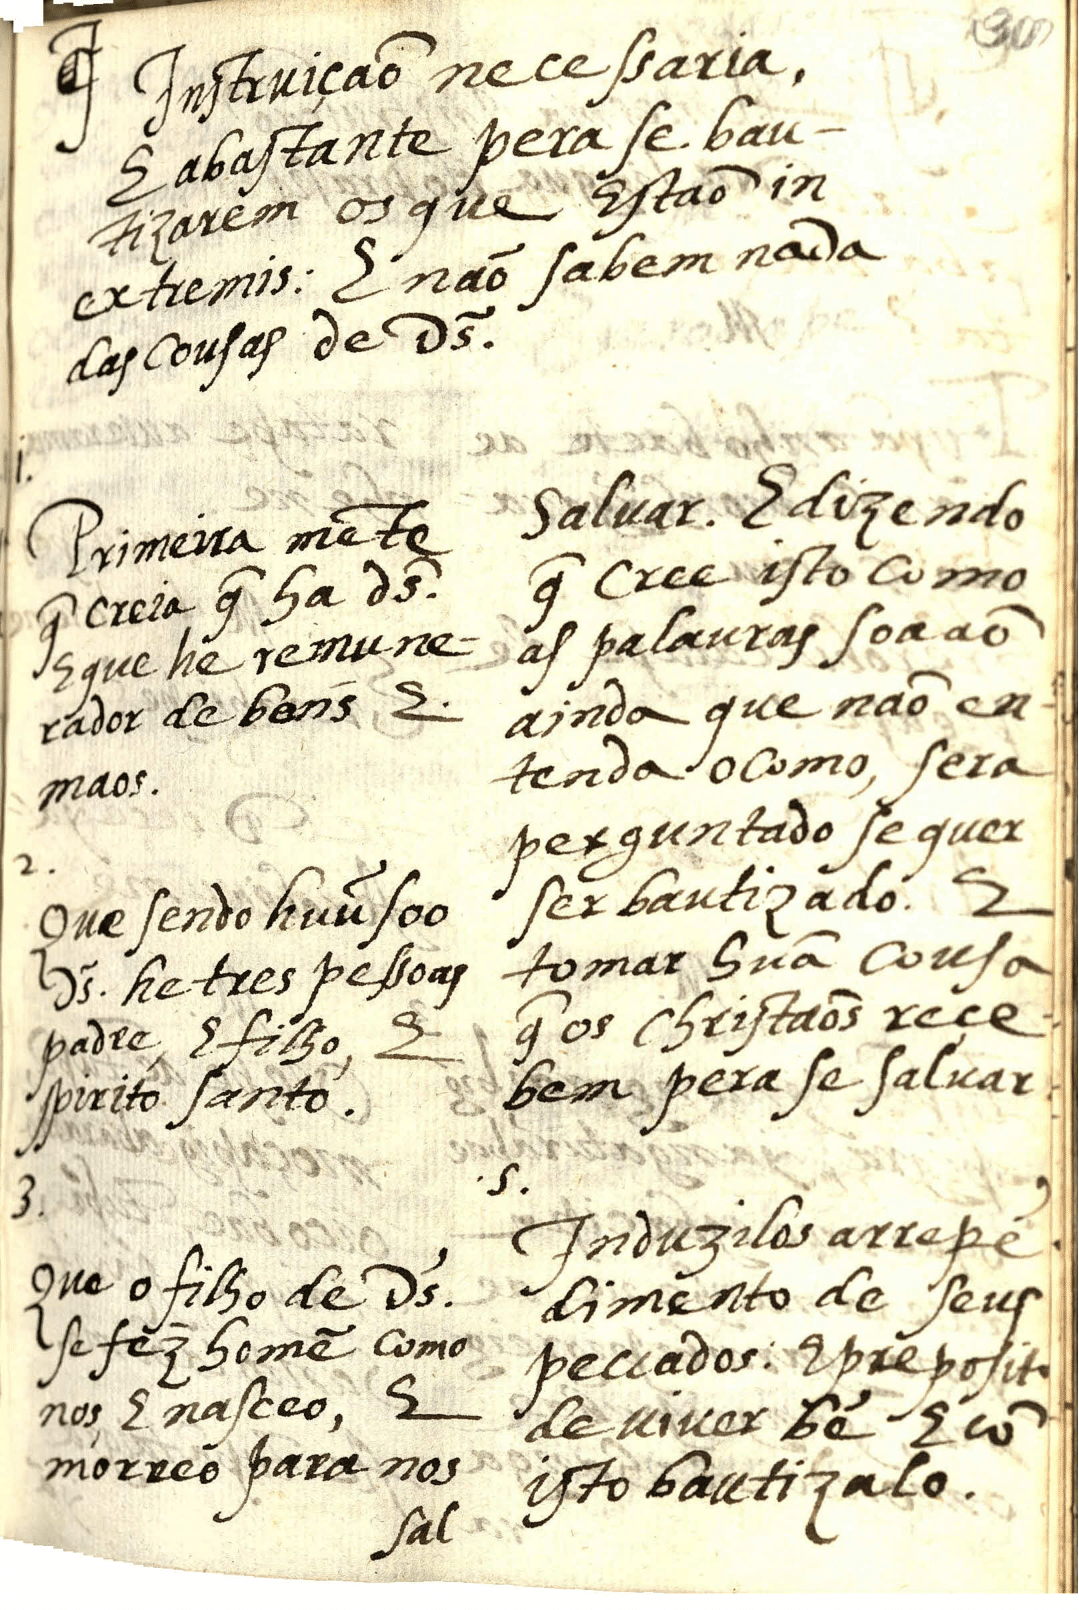 ¶ Instruiçaõ necessaria,
E abastante pera se. bau-
tizarem os que Estaõ in
extremis: E naõ sabem nada
das cousas de Ds̃.
1.
Primeira mẽte
q̃ creia q̃ ha ds̃.
E que he remune-
rador de bens E.
maos.
2.
Que sendo huũ soo
Ds̃. he tres pessoas
padre, E filho, E
spirito santo.
3.
Que o filho de Ds̃.
se fez homẽ como
nos, E nasceo, E
morreo para nos
sal
Saluar. E dizendo
q̃ cree isto como
as palauras soa aõ
ainda que naõ en-
tenda o como, sera
perguntado se quer
ser bautizado. E
tomar huã cousa
q̃ os Christaõs reçe-
bem pera se saluar.
5.
Induzilos arrepẽ
dimento de seus
peccados: E preposito
de viuer bẽ E cõ
isto bautizalo.